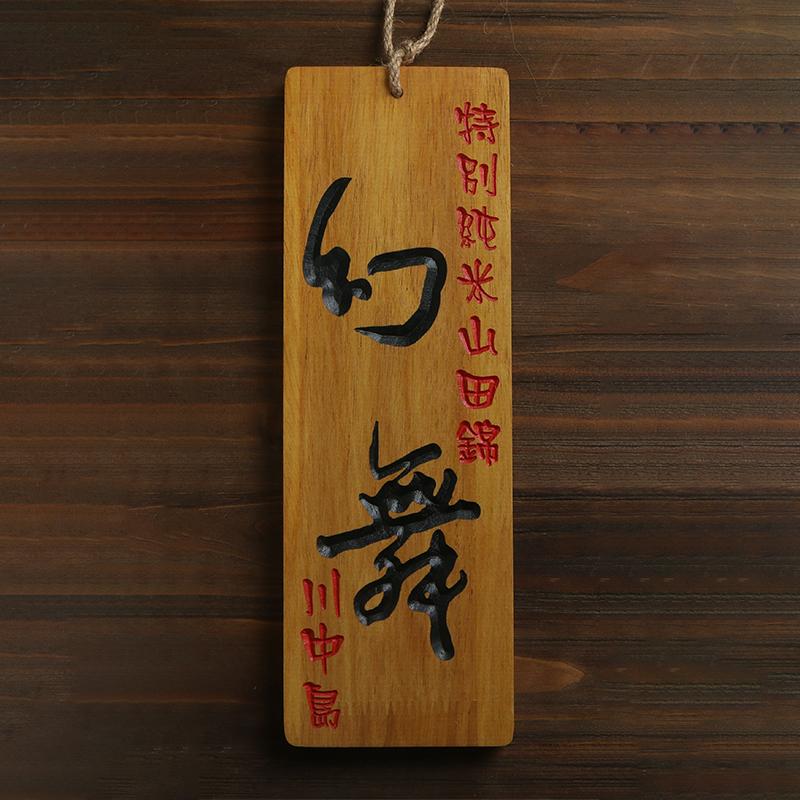 特別純米山田錦
幻舞
川中島